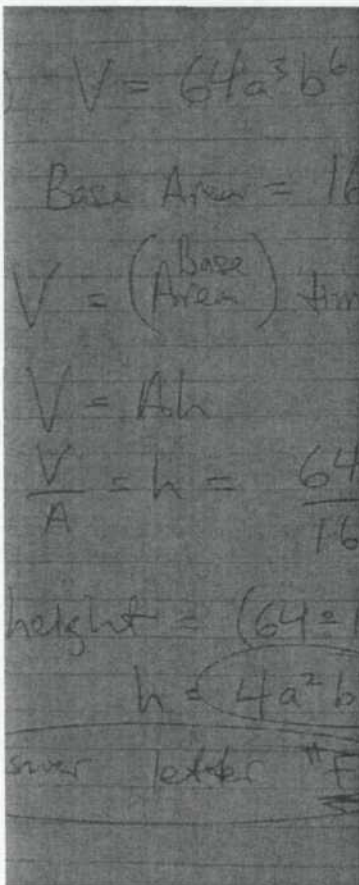 ) V = 64a³b⁶
Base Area = 16
V = (Base Area)
V = Ah
V/A = h = 64/16
height = (64÷1
h = 4a²b
letter "F